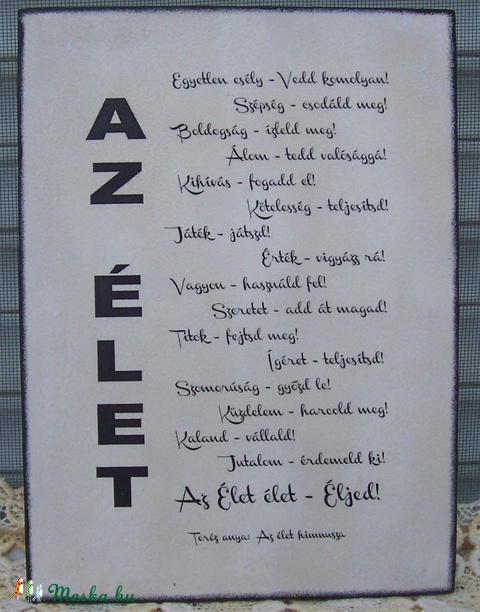 AZ ÉLET
Egyetlen esély - Vedd komolyan!
Szépség - csodáld meg!
Boldogság - ízleld meg!
Álom - tedd valósággá!
Kihívás - fogadd el!
Kötelesség - teljesítsd!
Játék - játszd!
Érték - vigyázz rá!
Vagyon - használd fel!
Szeretet - add át magad!
Titok - fejtsd meg!
Ígéret - teljesítsd!
Szomorúság - győzd le!
Küzdelem - harcold meg!
Kaland - vállald!
Jutalom - érdemeld ki!
Az Élet élet - Éljed!
Teréz anya: Az élet himnusza
Meska.hu